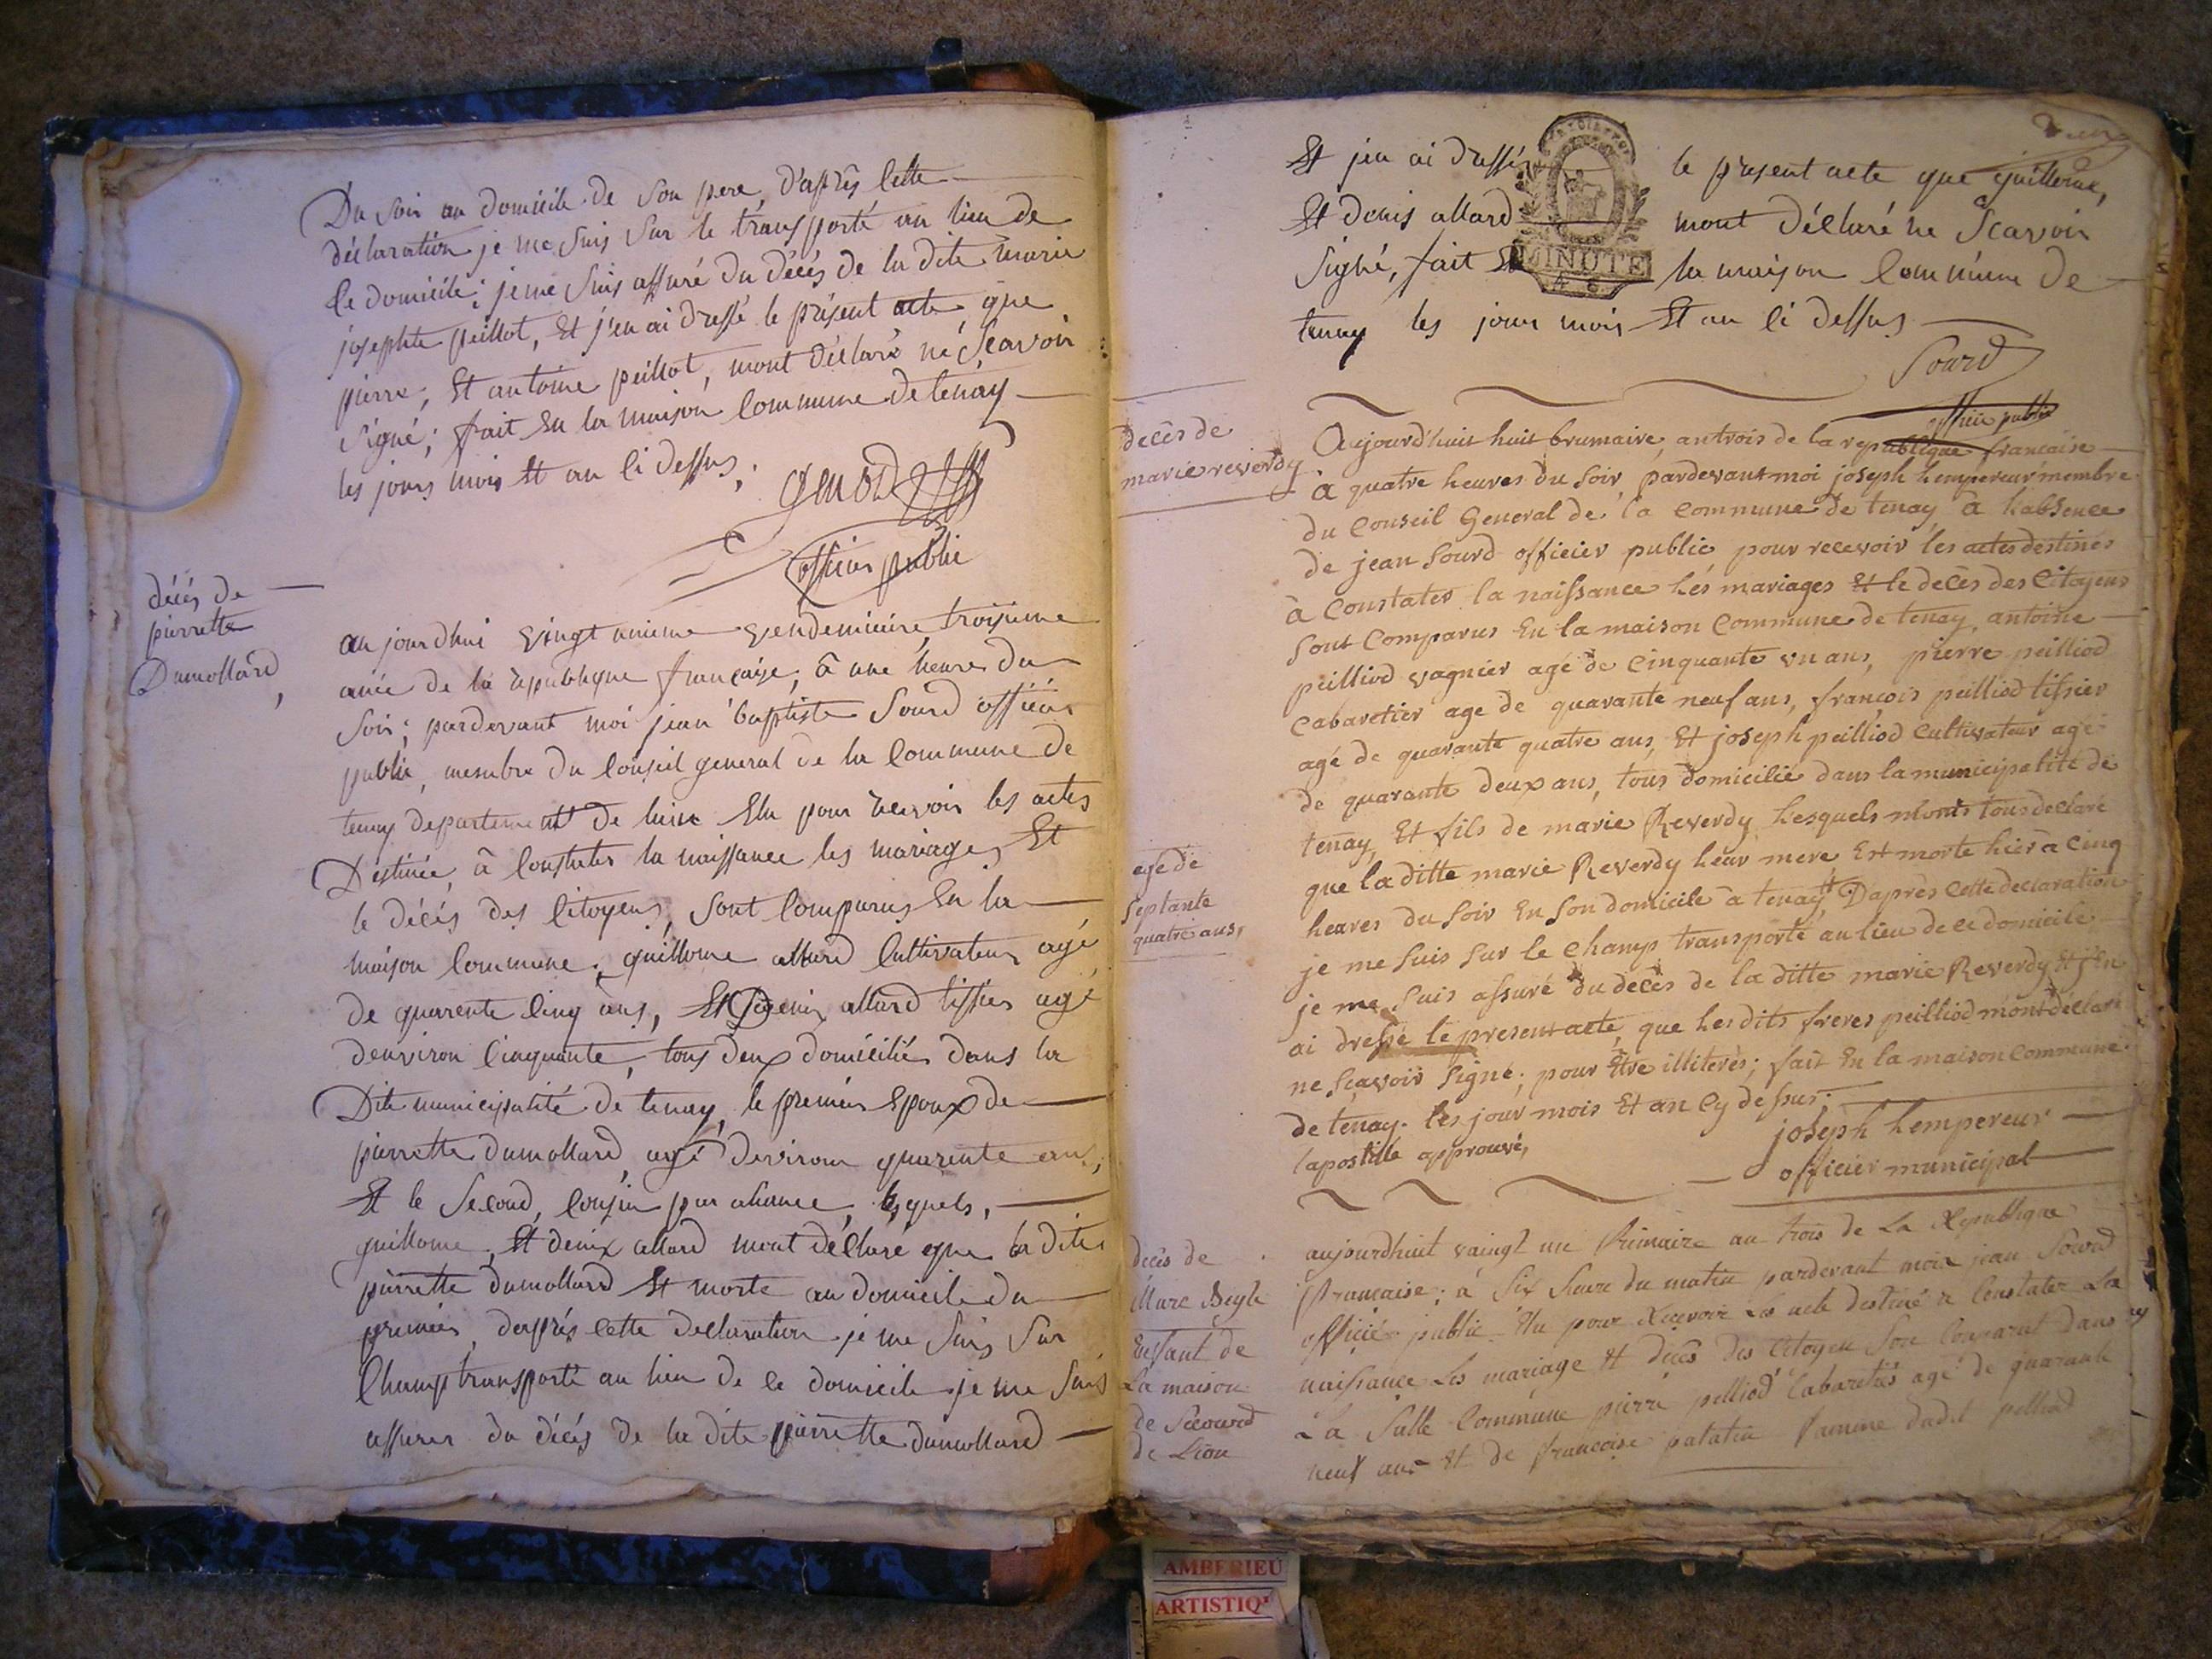 Du soir au domicile de son pere, d'après cette
déclaration je me suis sur le transporté au lieu de
ce domicile; je me suis assuré du décés de la dite marie
josephte peillot, Et j'en ai dressé le présent acte que
pierre, Et antoine peillot, mont déclaré né Scavoir
signé; fait En la maison Commune de tenay
les jours mois Et an ci dessus,
officier public
décés de
pierrette
Dumollard,
aujourdhui vingt unieme vendemiaire troisieme
anée de la république française, à une heure du
soir; pardevant moi jean baptiste Sourd officier
public, membre du Conseil general de la Commune de
tenay departement de lain Elu pour recevoir les actes
Destinée, à Constater la naissance les mariages Et
le décés des Citoyens, sont Comparus En la
maison Commune, guillome allard Cultivateur agé
de quarente Cinq ans, Et Denis allard tissier agé
denviron Cinquante, tous deux domiciliés dans la
Dite municipalité de tenay, le premier Epoux de
pierrette dumollard, agé denviron quarente ans,
Et le Second, Cousin par aliance, lesquels,
guillome, Et denix allard mont déclaré que la dite
pierrette dumollard Et morte au domicile du
premier, daprés cette declaration je me suis sur
Champ transporté au lieu de ce domicile je me suis
assurer du décés de la dite pierrette dumollard
Et jen ai dressé le present acte que guillome,
Et denis allard mont déclaré ne Scavoir
Signé, fait En la maison Commune de
MINUTE
tenay les jour mois Et an ci dessus
Sourd
officier public
decès de
marie reverdy
Aujourd'huit huit brumaire, an trois de la republique francaise
a quatre heures du soir, pardevant moi joseph hempereur membre
du Conseil General de la Commune de tenay à habsence
de jean Sourd officier public pour recevoir les actes destinés
à Constater la naissance les mariages Et le decès des Citoyens
sont Comparus En la maison Commune de tenay, antoine
peilliod vagnier agé de Cinquante un ans, pierre peilliod
Cabaretier age de quarante neuf ans, francois peilliod tissier
agé de quarante quatre ans, Et joseph peilliod Cultivateur agé
de quarante deux ans, tous domicilié dans la municipalité de
tenay, Et fils de marie Reverdy, lesquels monts tous declaré
que la ditte marie Reverdy leur mere Est morte hier a Cinq
heures du soir En son domicile à tenay. Daprès Cette declaration
je me suis sur le champ transporté au lieu de ce domicile
je me suis assuré du decès de la ditte marie Reverdy Et j'En
ai dressé le present acte, que lesdits freres peilliod mont déclaré
ne sçavoir signé, pour Etre illiterés; fait En la maison Commune
de tenay. les jour mois Et an Cy dessus;
lapostille approuvé,
joseph hempereur
officier municipal
agé de
septante
quatre ans,
decés de
Marc Begle
Enfant de
La maison
de Secourd
de Lion
aujourdhuit vaingt un frimaire an trois de La Republique
francaise; à six heure du matin pardevant moi jean Sourd
officié public Elu pour Recevoir Les acte destiné a Constater La
naissance Les mariage Et décès des Citoyen son Comparut Dans
La salle Commune pierre pelliod Cabaretiés agé de quarante
neuf ans Et de francoise patatin famme dudit pelliod
AMBERIEU
ARTISTIQ'